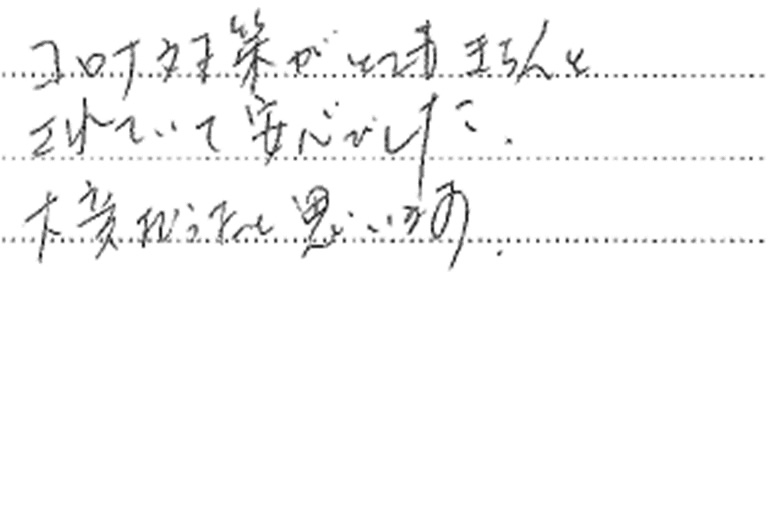 コロナ対策がとてもきちんと
されていて安心でした.
大変だったと思います.